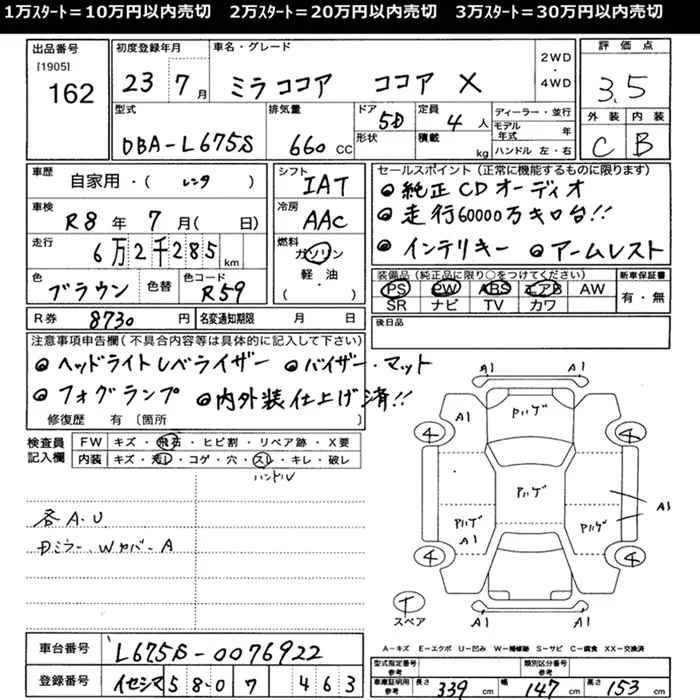 1万ｽﾀｰﾄ＝10万円以内売切　2万ｽﾀｰﾄ＝20万円以内売切　3万ｽﾀｰﾄ＝30万円以内売切
出品番号 初度登録年月 車名・グレード 評価点
[1905]
162 23 7月 ミラココア ココア X 2WD・4WD 3.5
型式 排気量 ドア 定員 ディーラー・並行 外装 内装
DBA-L675S 660 CC 5D 4人 モデル年式 年 C B
形状 積載 kg ハンドル 左・右
車歴 自家用・( レンタ ) シフト IAT
セールスポイント (正常に機能するものに限ります)
◎純正CDオーディオ
◎走行60000万キロ台!!
◎インテリキー ◎アームレスト
車検 R8年 7月( 日) 冷房 AAC
走行 6万2千285km 燃料 ガソリン 軽・油 (・)
色 ブラウン 色替 色コード R59
装備品 (純正品に限り○をつけてください) 新車保証書
PS PW ABS エアB AW 有・無
SR ナビ TV カワ
R券 8730円 名変通知期限 月 日
後日品
注意事項申告欄 (不具合内容等は具体的に記入して下さい)
◎ヘッドライトレベライザー ◎バイザー・マット
◎フォグランプ ◎内外装仕上げ済!!
修復歴 有 〔箇所 〕
検査員記入欄 FW キズ・飛石・ヒビ割・リペア跡・X要
内装 キズ・汚レ・コゲ・穴・スレ・キレ・破レ
ハンドル
各A.U
Dミラー、Wカバー A
A1 A1
A1 Aハゲ A1
4 4
Aハゲ
Aハゲ A1 Aハゲ A1
4 4
A1 A1
スペア
A−キズ E−エクボ U−凹み W−補修跡 S−サビ C−腐食 XX−交換済
車台番号 L675S-0076922
型式指定番号 参考 類別区分番号 参考
登録番号 イセシマ 580 ワ 463
車庫証明用 参考 長さ 339 cm 幅 147 cm 高さ 153 cm